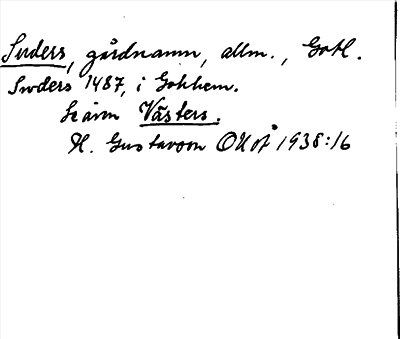 Suders, gårdnamn, allm., Gotl.
Swders 1487, i Gothem.
Se även Västers.
H. Gustavson OUÅ 1938:16